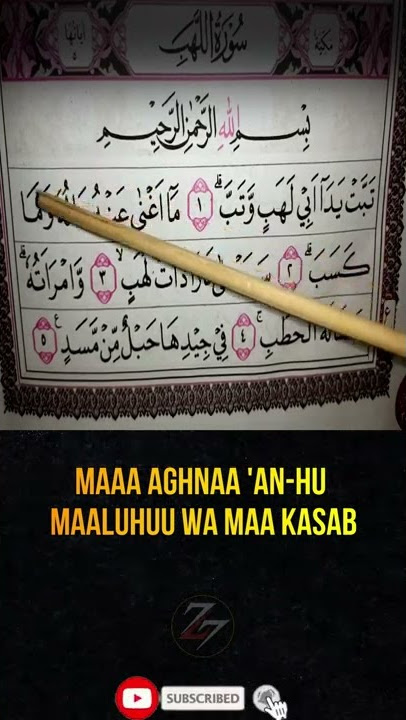 سُوْرَةُ اللَّهَبِ
بِسْمِ اللهِ الرَّحْمٰنِ الرَّحِيْمِ
تَبَّتْ يَدَآ اَبِيْ لَهَبٍ وَّتَبَّ ۚ ١ مَآ اَغْنٰى عَنْهُ وَمَا
كَسَبَ ۗ ٢ ذَاتَ لَهَبٍ ۙ ٣ وَّامْرَاَتُهٗ ۗ
الْحَطَبِ ۚ ٤ فِيْ جِيْدِهَا حَبْلٌ مِّنْ مَّسَدٍ ࣖ ٥
MAAA AGHNAA 'AN-HU
MAALUHUU WA MAA KASAB
SUBSCRIBED